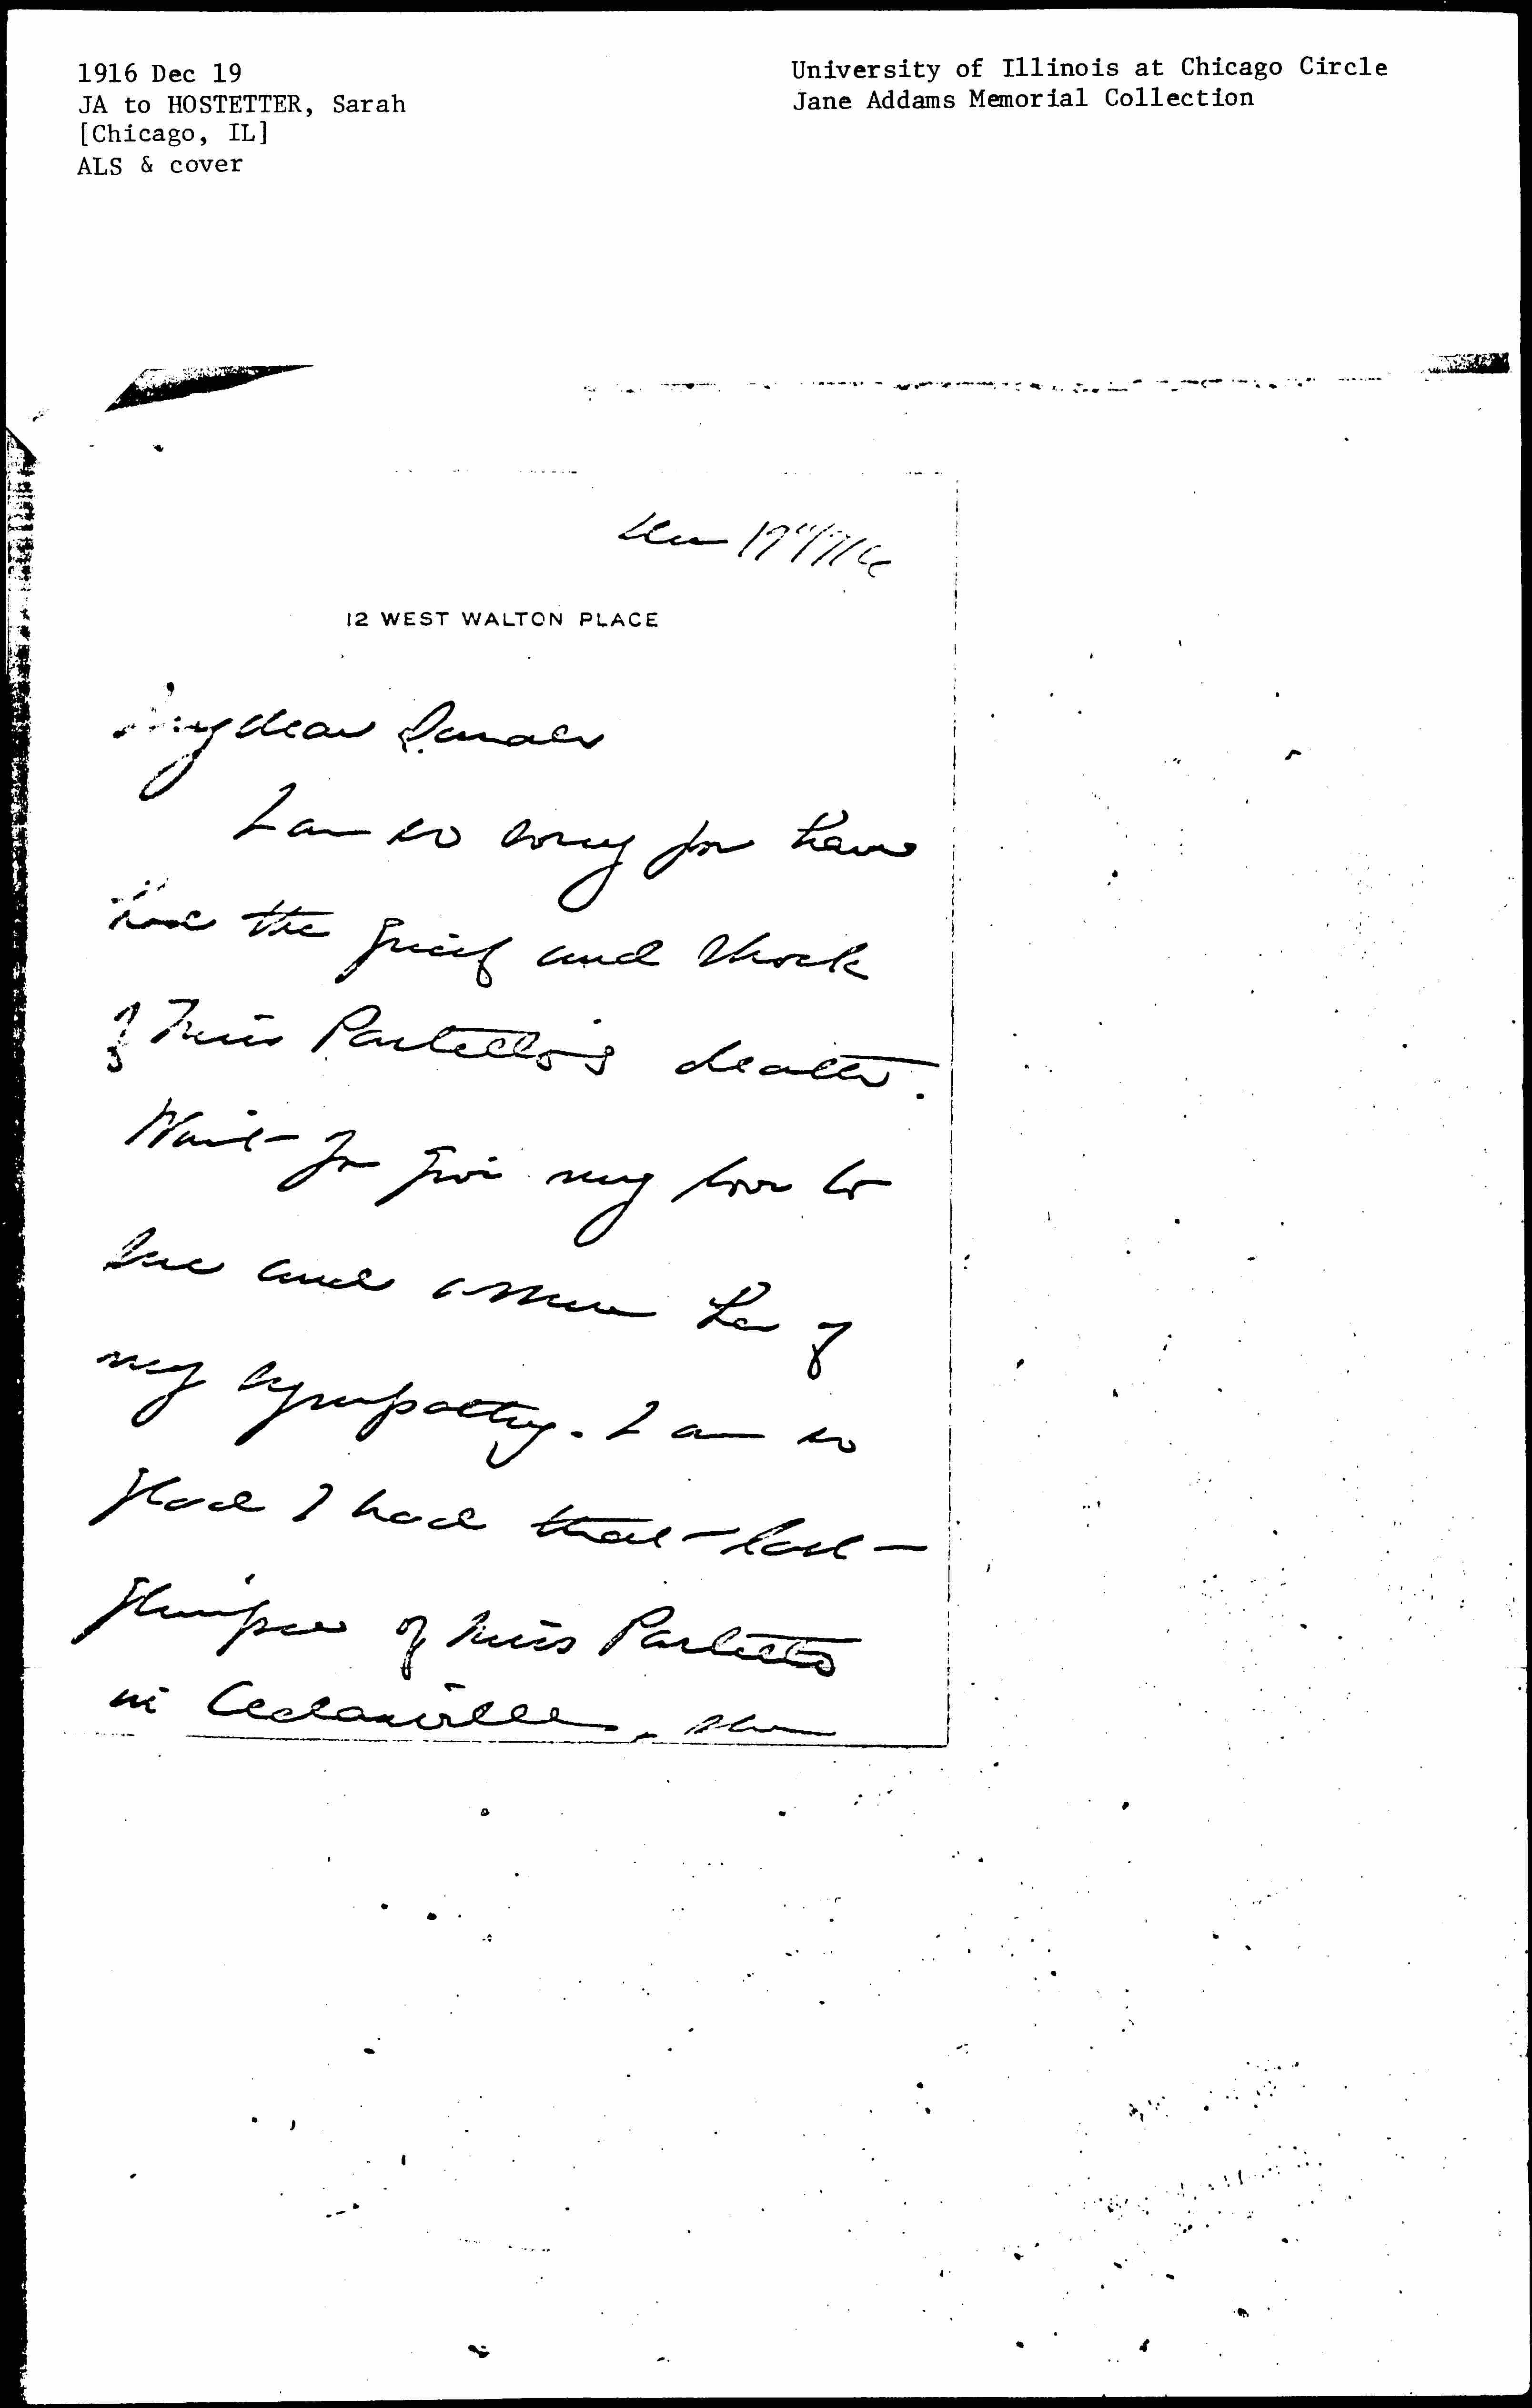 1916 Dec 19
JA to HOSTETTER, Sarah
[Chicago, IL]
ALS & cover
University of Illinois at Chicago Circle
Jane Addams Memorial Collection
Dec 19"/916
12 WEST WALTON PLACE
My dear Sarah
I am so sorry for
the grief and shock
of Miss Partello's death.
Won't you give my love to
her and assure her of
my sympathy. I am so
glad I had that last
glimpse of Miss Partello
in Cedarville, she